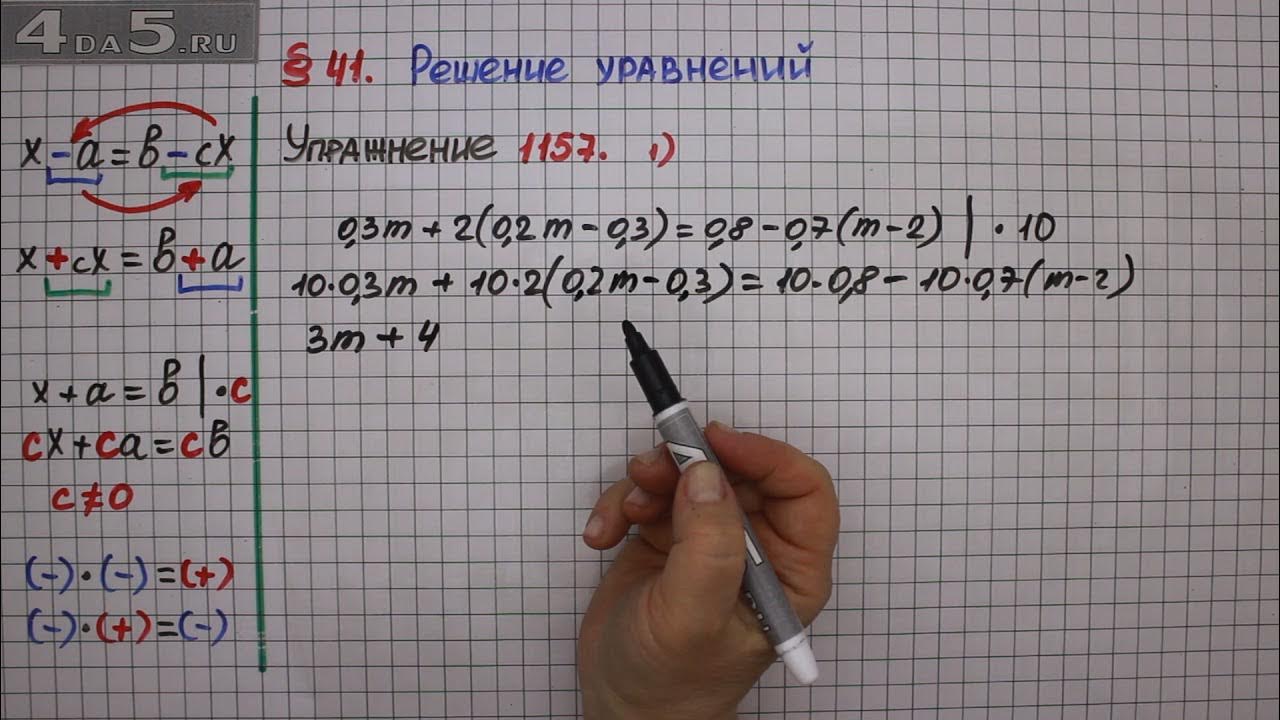 4DA5.RU
§ 41. Решение уравнений
x - a = b - cx
x + cx = b + a
x + a = b | · c
cx + ca = cb
c ≠ 0
(-) · (-) = (+)
(-) · (+) = (-)
Упражнение 1157. 1)
0,3m + 2(0,2m - 0,3) = 0,8 - 0,7(m - 2) | · 10
10 · 0,3m + 10 · 2(0,2m - 0,3) = 10 · 0,8 - 10 · 0,7(m - 2)
3m + 4